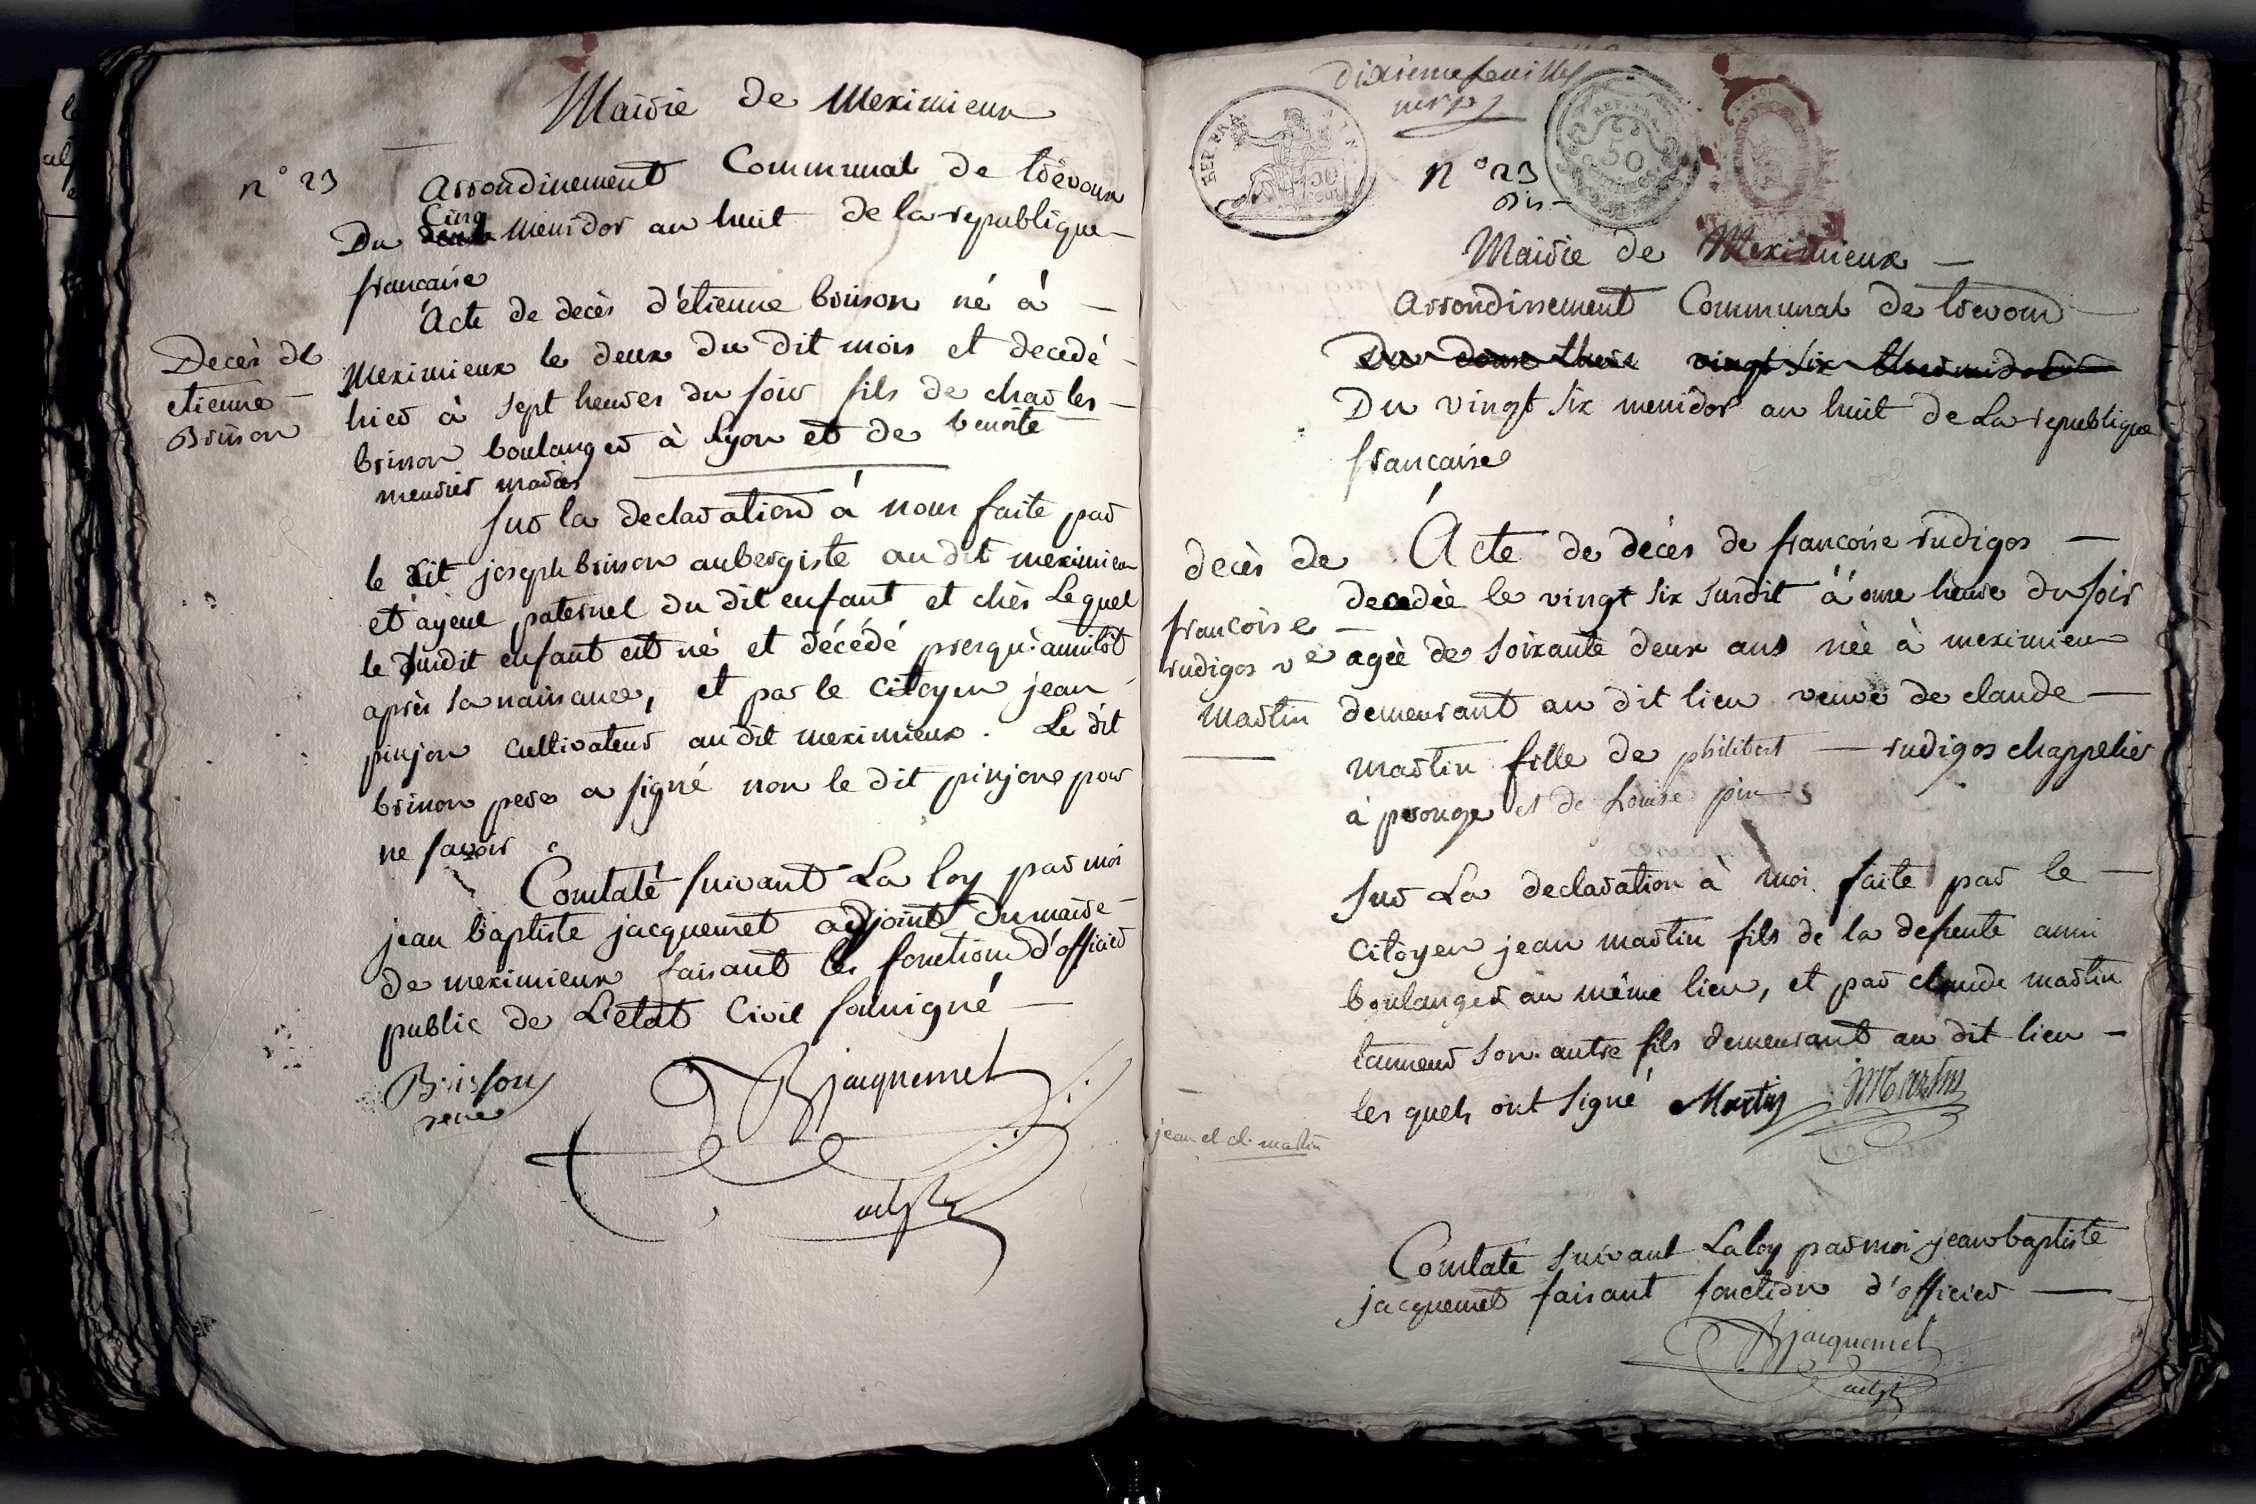 Mairie de Meximieux
n° 23
arrondinement Communal de trévoux
Du Cinq messidor an huit de la republique
francaise
Acte de decès d'étienne brisson né à
Decès de
etienne
Brisson
Meximieux le deux du dit mois et decedé
hier à sept heures du soir fils de charles
brisson boulanger à lyon et de benoite
meusier mariés
sur la declaration à nous faite par
le dit joseph brisson aubergiste au dit meximieu
et ayeul paternel du dit enfant et chès Lequel
le susdit enfant est né et décédé presqu'aussitôt
après sa naissance, et par le citoyen jean
pinjon cultivateur audit meximieux. Le dit
brisson pere a signé non le dit pinjone pour
ne savoir
Constaté suivant La loy par moi
jean baptiste jacquemet adjoint du maire
de meximieux faisant les fonctions d'officier
public de L'etat Civil soussigné
Brisson
Bjacquemet
adjt
dixieme feuillet
REP. FRA.
50
n° 23
bis
Mairie de Meximieux
arrondissement Communal de trevoux
Du vingt six thermidor
Du vingt six messidor an huit de La republique
francaise
decès de
françoise
rudigos ve
Martin
Acte de décès de francoise rudigos
decedée le vingt six susdit à onze heure du soir
agée de soixante deux ans née à meximieu
demeurant au dit lieu veuve de claude
martin fille de philibert rudigos chappelier
à perouge et de Louise pin
sur La declaration à moi faite par le
citoyen jean martin fils de la defunte aussi
boulanger au même lieu, et par claude martin
tanneur son autre fils demeurant au dit lieu
les quels ont signé Martin JMartin
jean et cl. martin
Constaté suivant La loy par moi jean baptiste
jacquemet faisant fonction d'officier
Bjacquemet
adjt